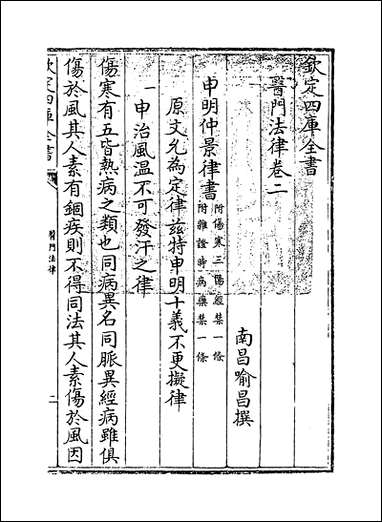 欽定四庫全書
醫門法律卷二
南昌喻昌撰
申明仲景律書
附傷寒三陽經禁一條
附雜證時病藥禁一條
原文允為定律茲特申明十義不更擬律
一申治風温不可發汗之律
傷寒有五皆熱病之類也同病異名同脈異經病雖俱
傷於風其人素有錮疾則不得同法其人素傷於風因
欽定四庫全書
醫門法律